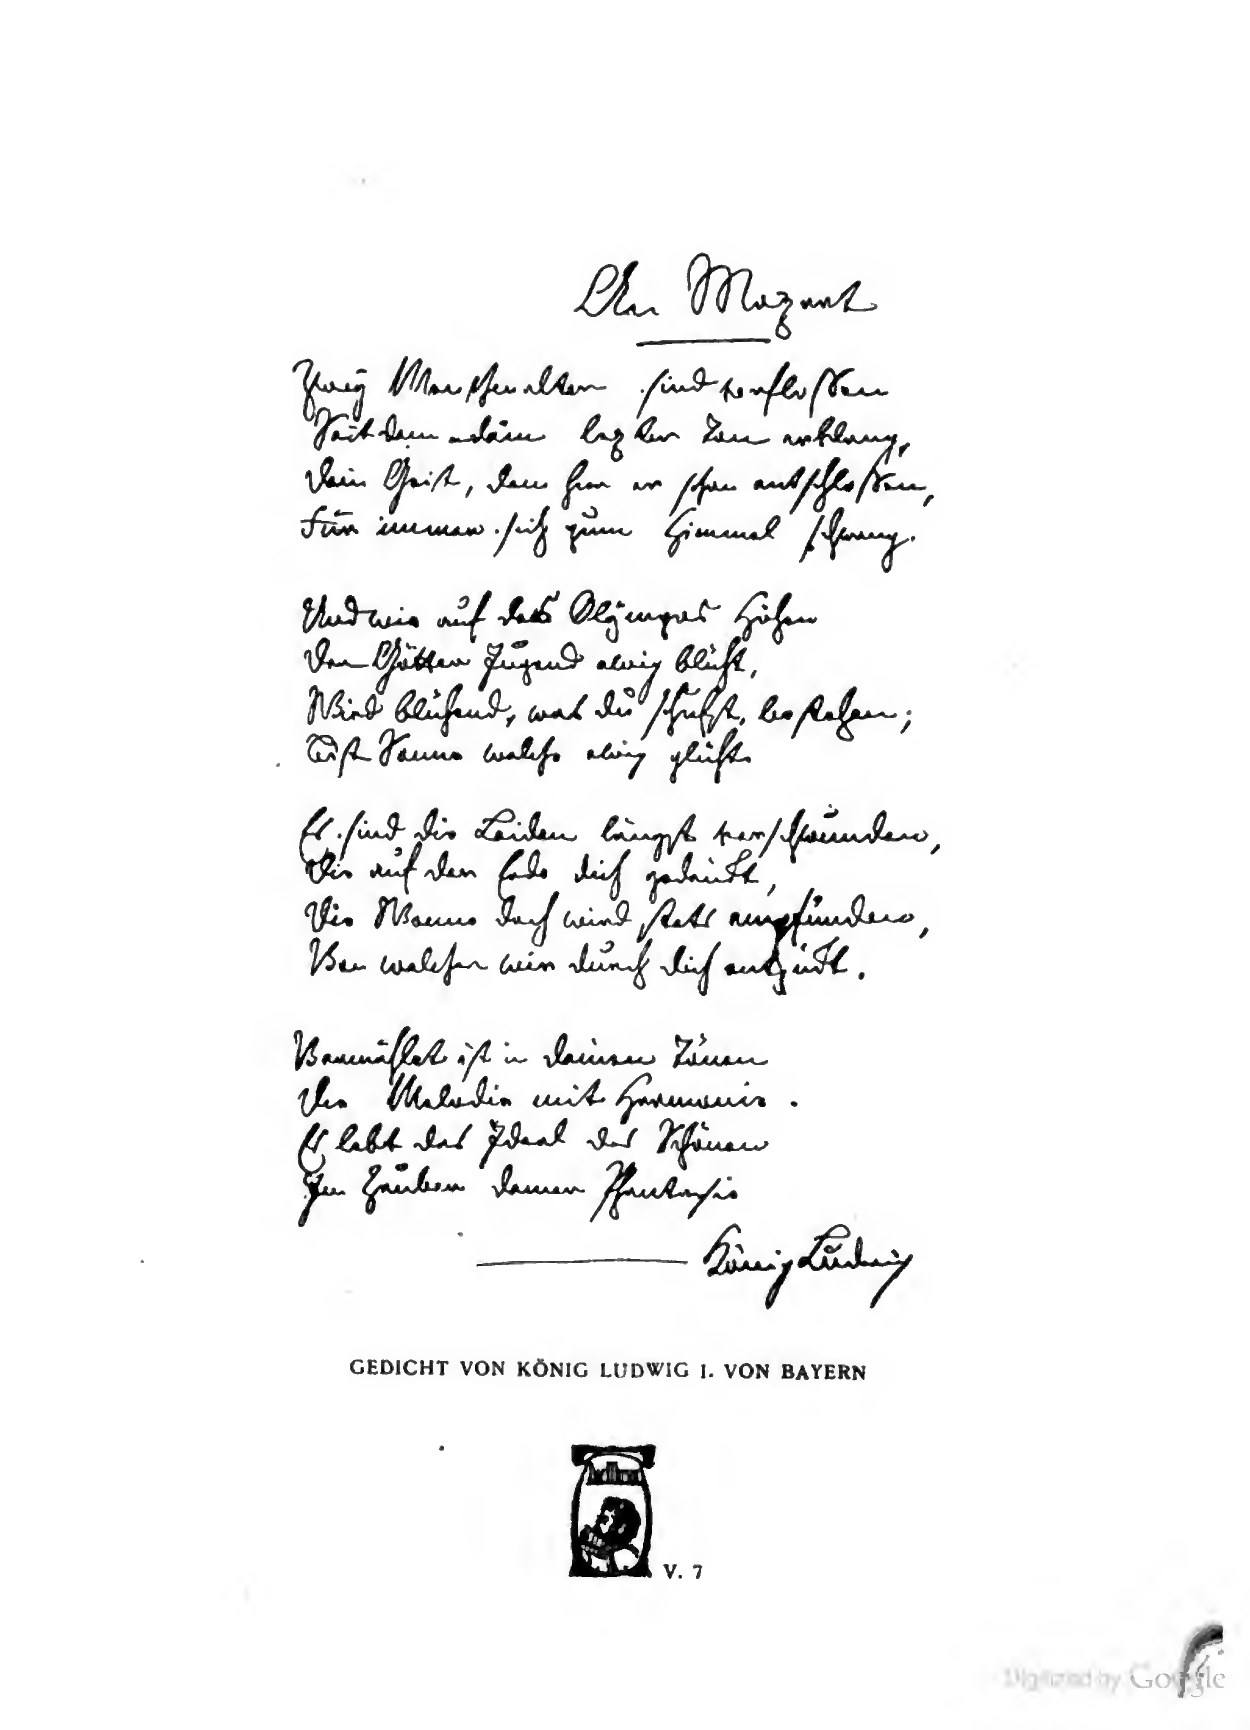 An Mozart
Zwey Menschenalter sind verflossen
Seitdem dein lezter Ton erklang,
Dein Geist, dem hier er schon entschlossen,
Für immer sich zum Himmel schwang.
Und wie auf des Olympos Höhen
Der Götter Jugend ewig blüht,
Wird blühend, was du schufst, bestehen;
Bist Sonne welche ewig glüht.
Es sind die Leiden längst verschwunden,
Die auf der Erde dich gedrückt,
Die Wonne doch wird stets empfunden,
Von welcher wir durch dich entzückt.
Vermählet ist in deinen Tönen
Die Melodie mit Harmonie.
Es lebt das Ideal des Schönen
Im Zauber deiner Phantasie
König Ludwig
GEDICHT VON KÖNIG LUDWIG I. VON BAYERN
V. 7
Digitized by Google